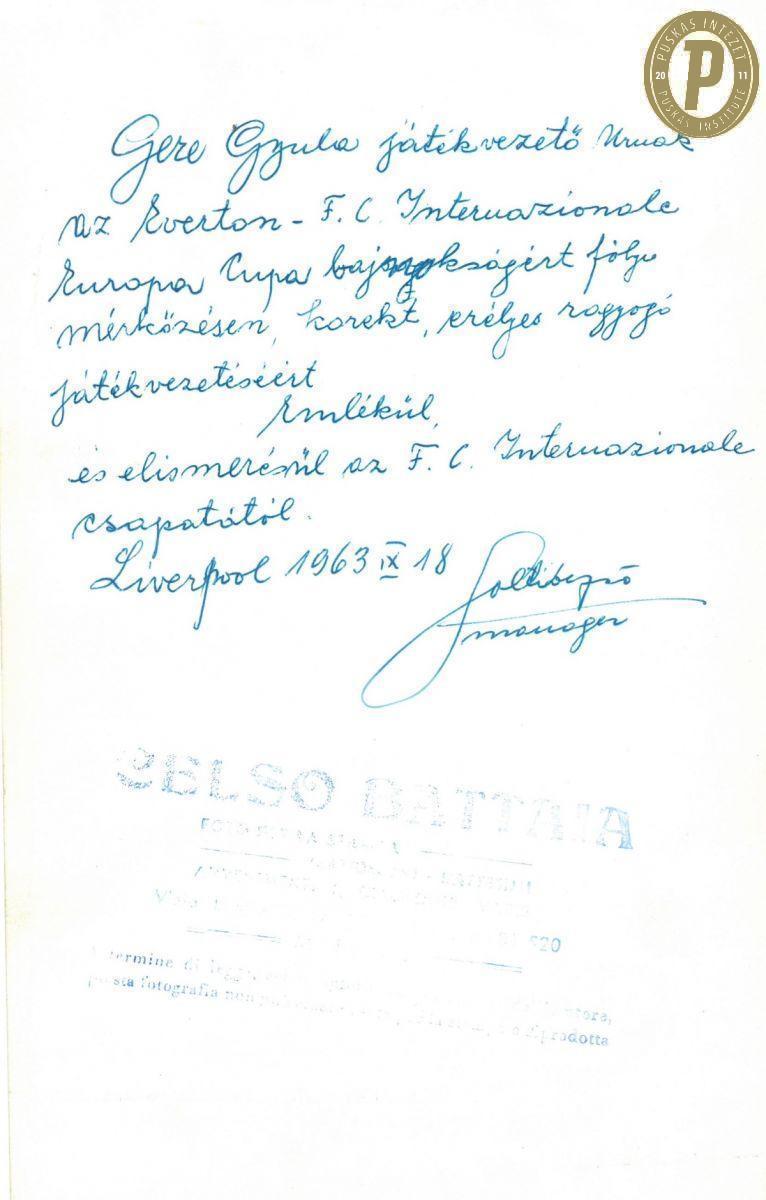 PUSKÁS INTÉZET
20 P 11
PUSKÁS INSTITUTE
Gere Gyula játékvezető Urnak
az Everton - F. C. Internazionale
Europa Cupa bajnokságért folyu
mérkőzésen, korekt, erélyes ragyogó
játékvezetéséért
Emlékül,
és elismerésül az F. C. Internazionale
csapatától.
Liverpool 1963 IX 18
Solti Dezső
manager
CELSO BATTAIA
FOTO
520
termine di legge,
questa fotografia non riprodotta